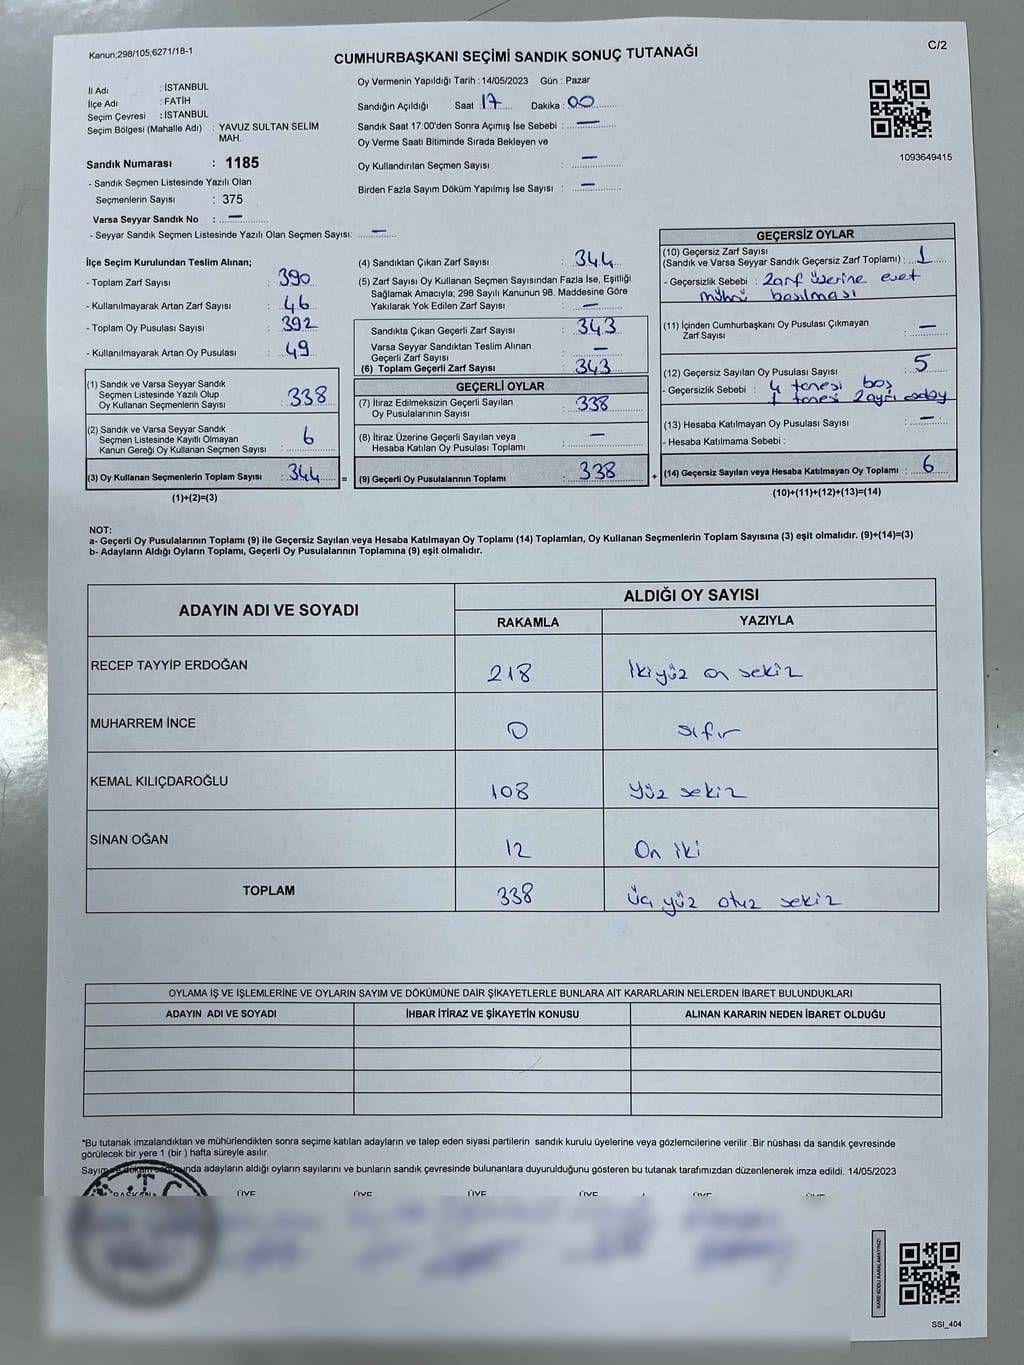 Kanun;298/105;6271/18-1
C/2
CUMHURBAŞKANI SEÇİMİ SANDIK SONUÇ TUTANAĞI
İl Adı : İSTANBUL
İlçe Adı : FATİH
Seçim Çevresi : İSTANBUL
Seçim Bölgesi (Mahalle Adı) : YAVUZ SULTAN SELİM
MAH.
Sandık Numarası : 1185
- Sandık Seçmen Listesinde Yazılı Olan
Seçmenlerin Sayısı : 375
Varsa Seyyar Sandık No : —
- Seyyar Sandık Seçmen Listesinde Yazılı Olan Seçmen Sayısı: —
Oy Vermenin Yapıldığı Tarih : 14/05/2023 Gün : Pazar
Sandığın Açıldığı Saat : 17 Dakika : 00
Sandık Saat 17:00'den Sonra Açımış İse Sebebi : —
Oy Verme Saati Bitiminde Sırada Bekleyen ve
Oy Kullandırılan Seçmen Sayısı : —
Birden Fazla Sayım Döküm Yapılmış İse Sayısı : —
1093649415
İlçe Seçim Kurulundan Teslim Alınan;
- Toplam Zarf Sayısı : 390
- Kullanılmayarak Artan Zarf Sayısı : 46
- Toplam Oy Pusulası Sayısı : 392
- Kullanılmayarak Artan Oy Pusulası : 49
(1) Sandık ve Varsa Seyyar Sandık
Seçmen Listesinde Yazılı Olup
Oy Kullanan Seçmenlerin Sayısı : 338
(2) Sandık ve Varsa Seyyar Sandık
Seçmen Listesinde Kayıtlı Olmayan
Kanun Gereği Oy Kullanan Seçmen Sayısı : 6
(3) Oy Kullanan Seçmenlerin Toplam Sayısı : 344 =
(1)+(2)=(3)
(4) Sandıktan Çıkan Zarf Sayısı : 344
(5) Zarf Sayısı Oy Kullanan Seçmen Sayısından Fazla İse, Eşitliği
Sağlamak Amacıyla, 298 Sayılı Kanunun 98. Maddesine Göre
Yakılarak Yok Edilen Zarf Sayısı : —
Sandıkta Çıkan Geçerli Zarf Sayısı : 343
Varsa Seyyar Sandıktan Teslim Alınan
Geçerli Zarf Sayısı : —
(6) Toplam Geçerli Zarf Sayısı : 343
GEÇERLİ OYLAR
(7) İtiraz Edilmeksizin Geçerli Sayılan
Oy Pusulalarının Sayısı : 338
(8) İtiraz Üzerine Geçerli Sayılan veya
Hesaba Katılan Oy Pusulası Toplamı : —
(9) Geçerli Oy Pusulalarının Toplamı : 338 +
GEÇERSİZ OYLAR
(10) Geçersiz Zarf Sayısı
(Sandık ve Varsa Seyyar Sandık Geçersiz Zarf Toplamı) : 1
- Geçersizlik Sebebi : Zarf üzerine evet
mührü basılması
(11) İçinden Cumhurbaşkanı Oy Pusulası Çıkmayan
Zarf Sayısı : —
(12) Geçersiz Sayılan Oy Pusulası Sayısı : 5
- Geçersizlik Sebebi : 4 tanesi boş
1 tanesi 2 ayrı aday
(13) Hesaba Katılmayan Oy Pusulası Sayısı : —
- Hesaba Katılmama Sebebi :
(14) Geçersiz Sayılan veya Hesaba Katılmayan Oy Toplamı : 6
(10)+(11)+(12)+(13)=(14)
NOT:
a- Geçerli Oy Pusulalarının Toplamı (9) ile Geçersiz Sayılan veya Hesaba Katılmayan Oy Toplamı (14) Toplamları, Oy Kullanan Seçmenlerin Toplam Sayısına (3) eşit olmalıdır. (9)+(14)=(3)
b- Adayların Aldığı Oyların Toplamı, Geçerli Oy Pusulalarının Toplamına (9) eşit olmalıdır.
ADAYIN ADI VE SOYADI ALDIĞI OY SAYISI
RAKAMLA YAZIYLA
RECEP TAYYİP ERDOĞAN 218 İkiyüz on sekiz
MUHARREM İNCE 0 sıfır
KEMAL KILIÇDAROĞLU 108 Yüz sekiz
SİNAN OĞAN 12 On iki
TOPLAM 338 Üç yüz otuz sekiz
OYLAMA İŞ VE İŞLEMLERİNE VE OYLARIN SAYIM VE DÖKÜMÜNE DAİR ŞİKAYETLERLE BUNLARA AİT KARARLARIN NELERDEN İBARET BULUNDUKLARI
ADAYIN ADI VE SOYADI İHBAR İTİRAZ VE ŞİKAYETİN KONUSU ALINAN KARARIN NEDEN İBARET OLDUĞU
*Bu tutanak imzalandıktan ve mühürlendikten sonra seçime katılan adayların ve talep eden siyasi partilerin sandık kurulu üyelerine veya gözlemcilerine verilir .Bir nüshası da sandık çevresinde
görülecek bir yere 1 (bir ) hafta süreyle asılır.
Sayım ve döküm sonucunda adayların aldığı oyların sayılarını ve bunların sandık çevresinde bulunanlara duyurulduğunu gösteren bu tutanak tarafımızdan düzenlenerek imza edildi. 14/05/2023
BAŞKAN ÜYE ÜYE ÜYE ÜYE ÜYE
KARE KODU KARALAMAYINIZ!
SSI_404